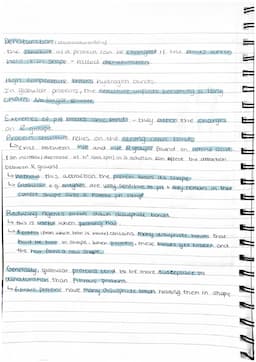 Denaturation
the structure of a protein can be changed if the bonds which
hold it in shape - called denaturation
High temperature breaks hydrogen bonds.
In globular proteins, the structure unfolds becoming a long
Extremes of pH breaks ionic bonds - they affect the charges
on R groups.
Protein structure relies on the strong ionic bonds
↳ exist between +ve and -ve R groups found in amino acids
(an increase / decrease in H+ ions (pH) in a solution can affect the attraction
between R groups)
↳ Without this attraction the protein loses its shape
↳ Globular e.g. enzymes are very sensitive to pH
correct shape
Reducing agents break down disulphide bonds
↳ this is useful when perming hair
↳ Keratin (from which hair is made) contains many disulphide bonds that
hold the hair in shape. When perming, these bonds get broken and
the hair forms a new shape.
Generally, globular proteins tend to be more susceptible to
denaturation than fibrous proteins.
↳ fibrous proteins have many disulphide bonds holding them in shape.